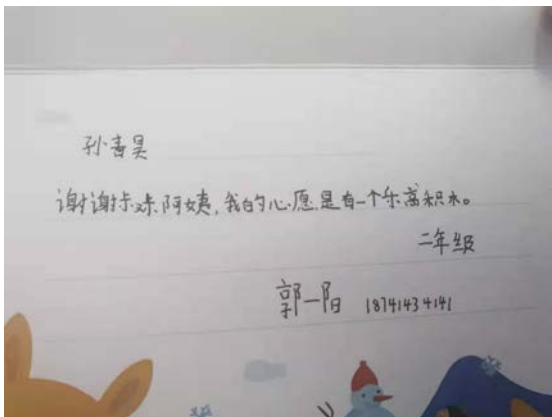 孙喜昊
谢谢卡咪阿姨,我的心愿是有一个乐高积木。
二年级
郭一阳 18741434141